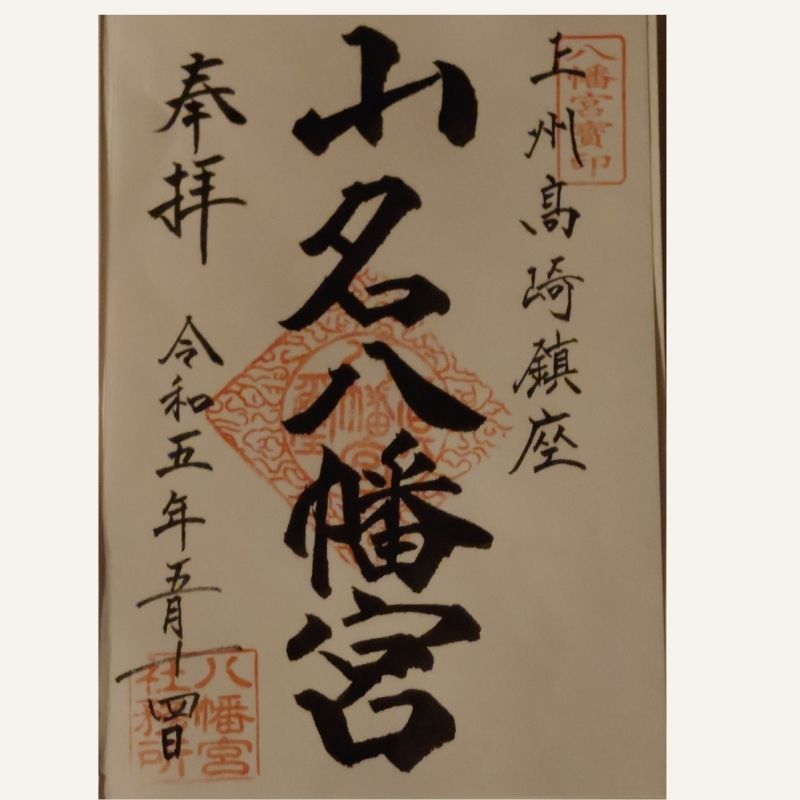 八幡宮寶印
上州高崎鎮座
山名八幡宮
奉拝
令和五年五月十四日
八幡宮
社務所